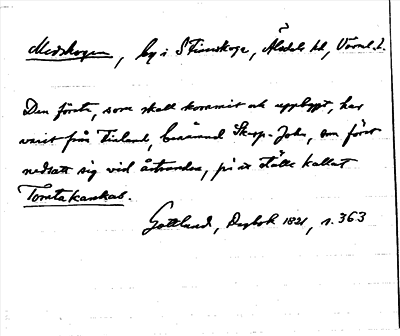 Medskogen, by i S Finnskoga, Älvdals hd, Värml. l.
Den förste, som skall kommit och uppbygt, har
varit från Finland, benämnd Skarp-John, som först
nedsatt sig vid åstranden, på et ställe kallat
Tomtakankas.
Gottlund, Dagbok 1821, s. 363